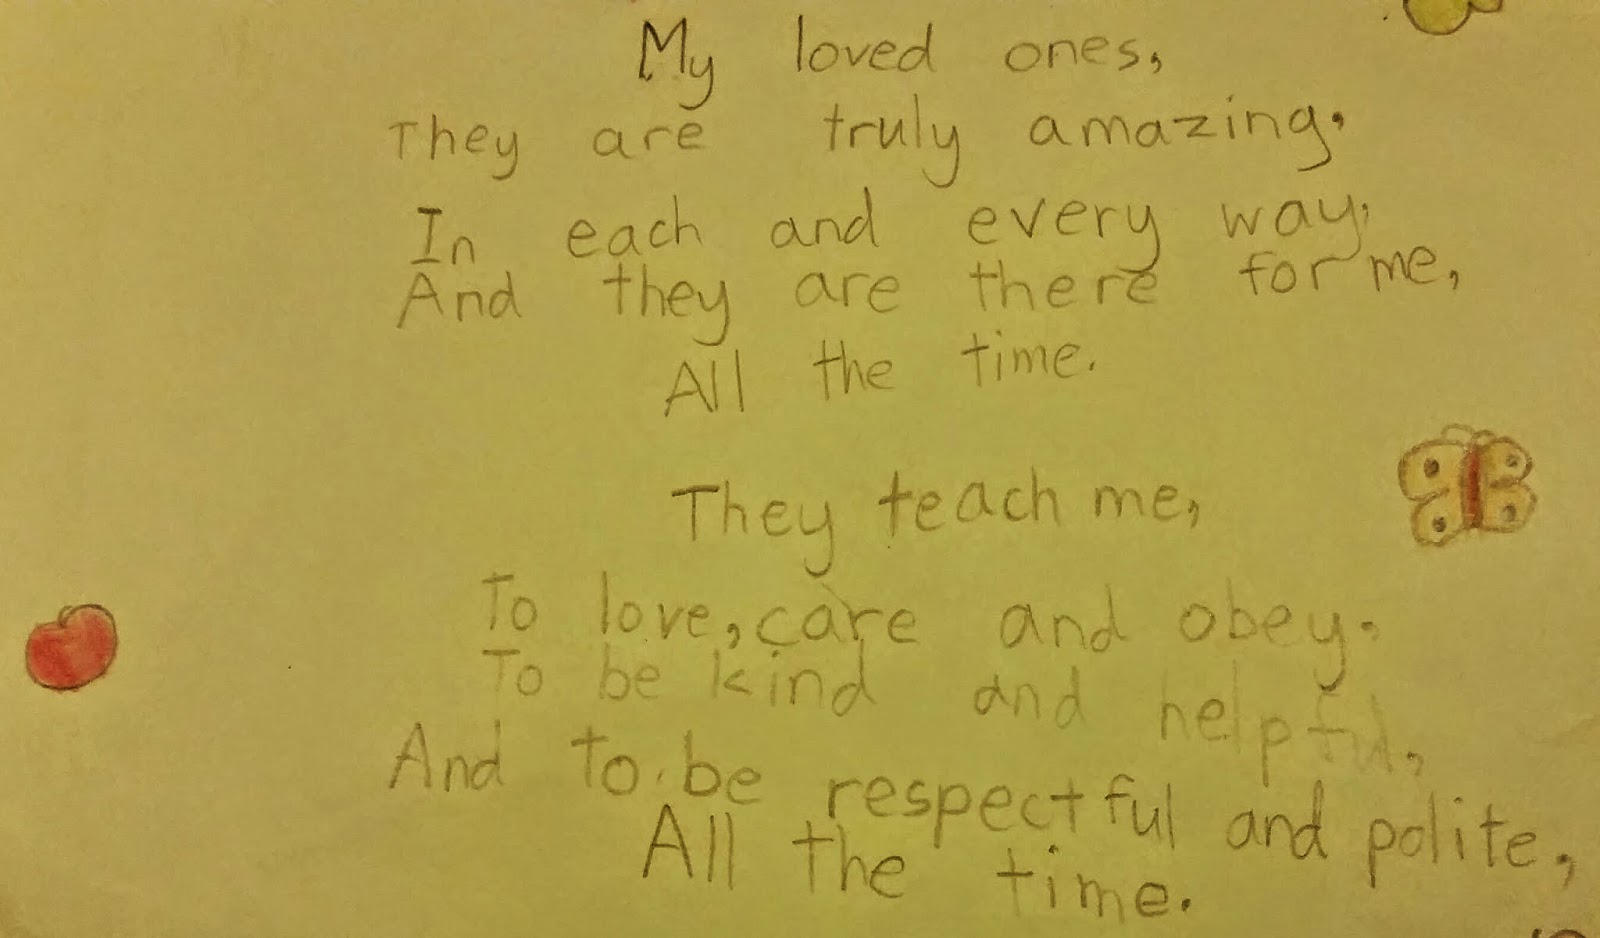 My loved ones,
They are truly amazing.
In each and every way,
And they are there for me,
All the time.
They teach me,
To love, care and obey.
To be kind and helpful,
And to be respectful and polite,
All the time.